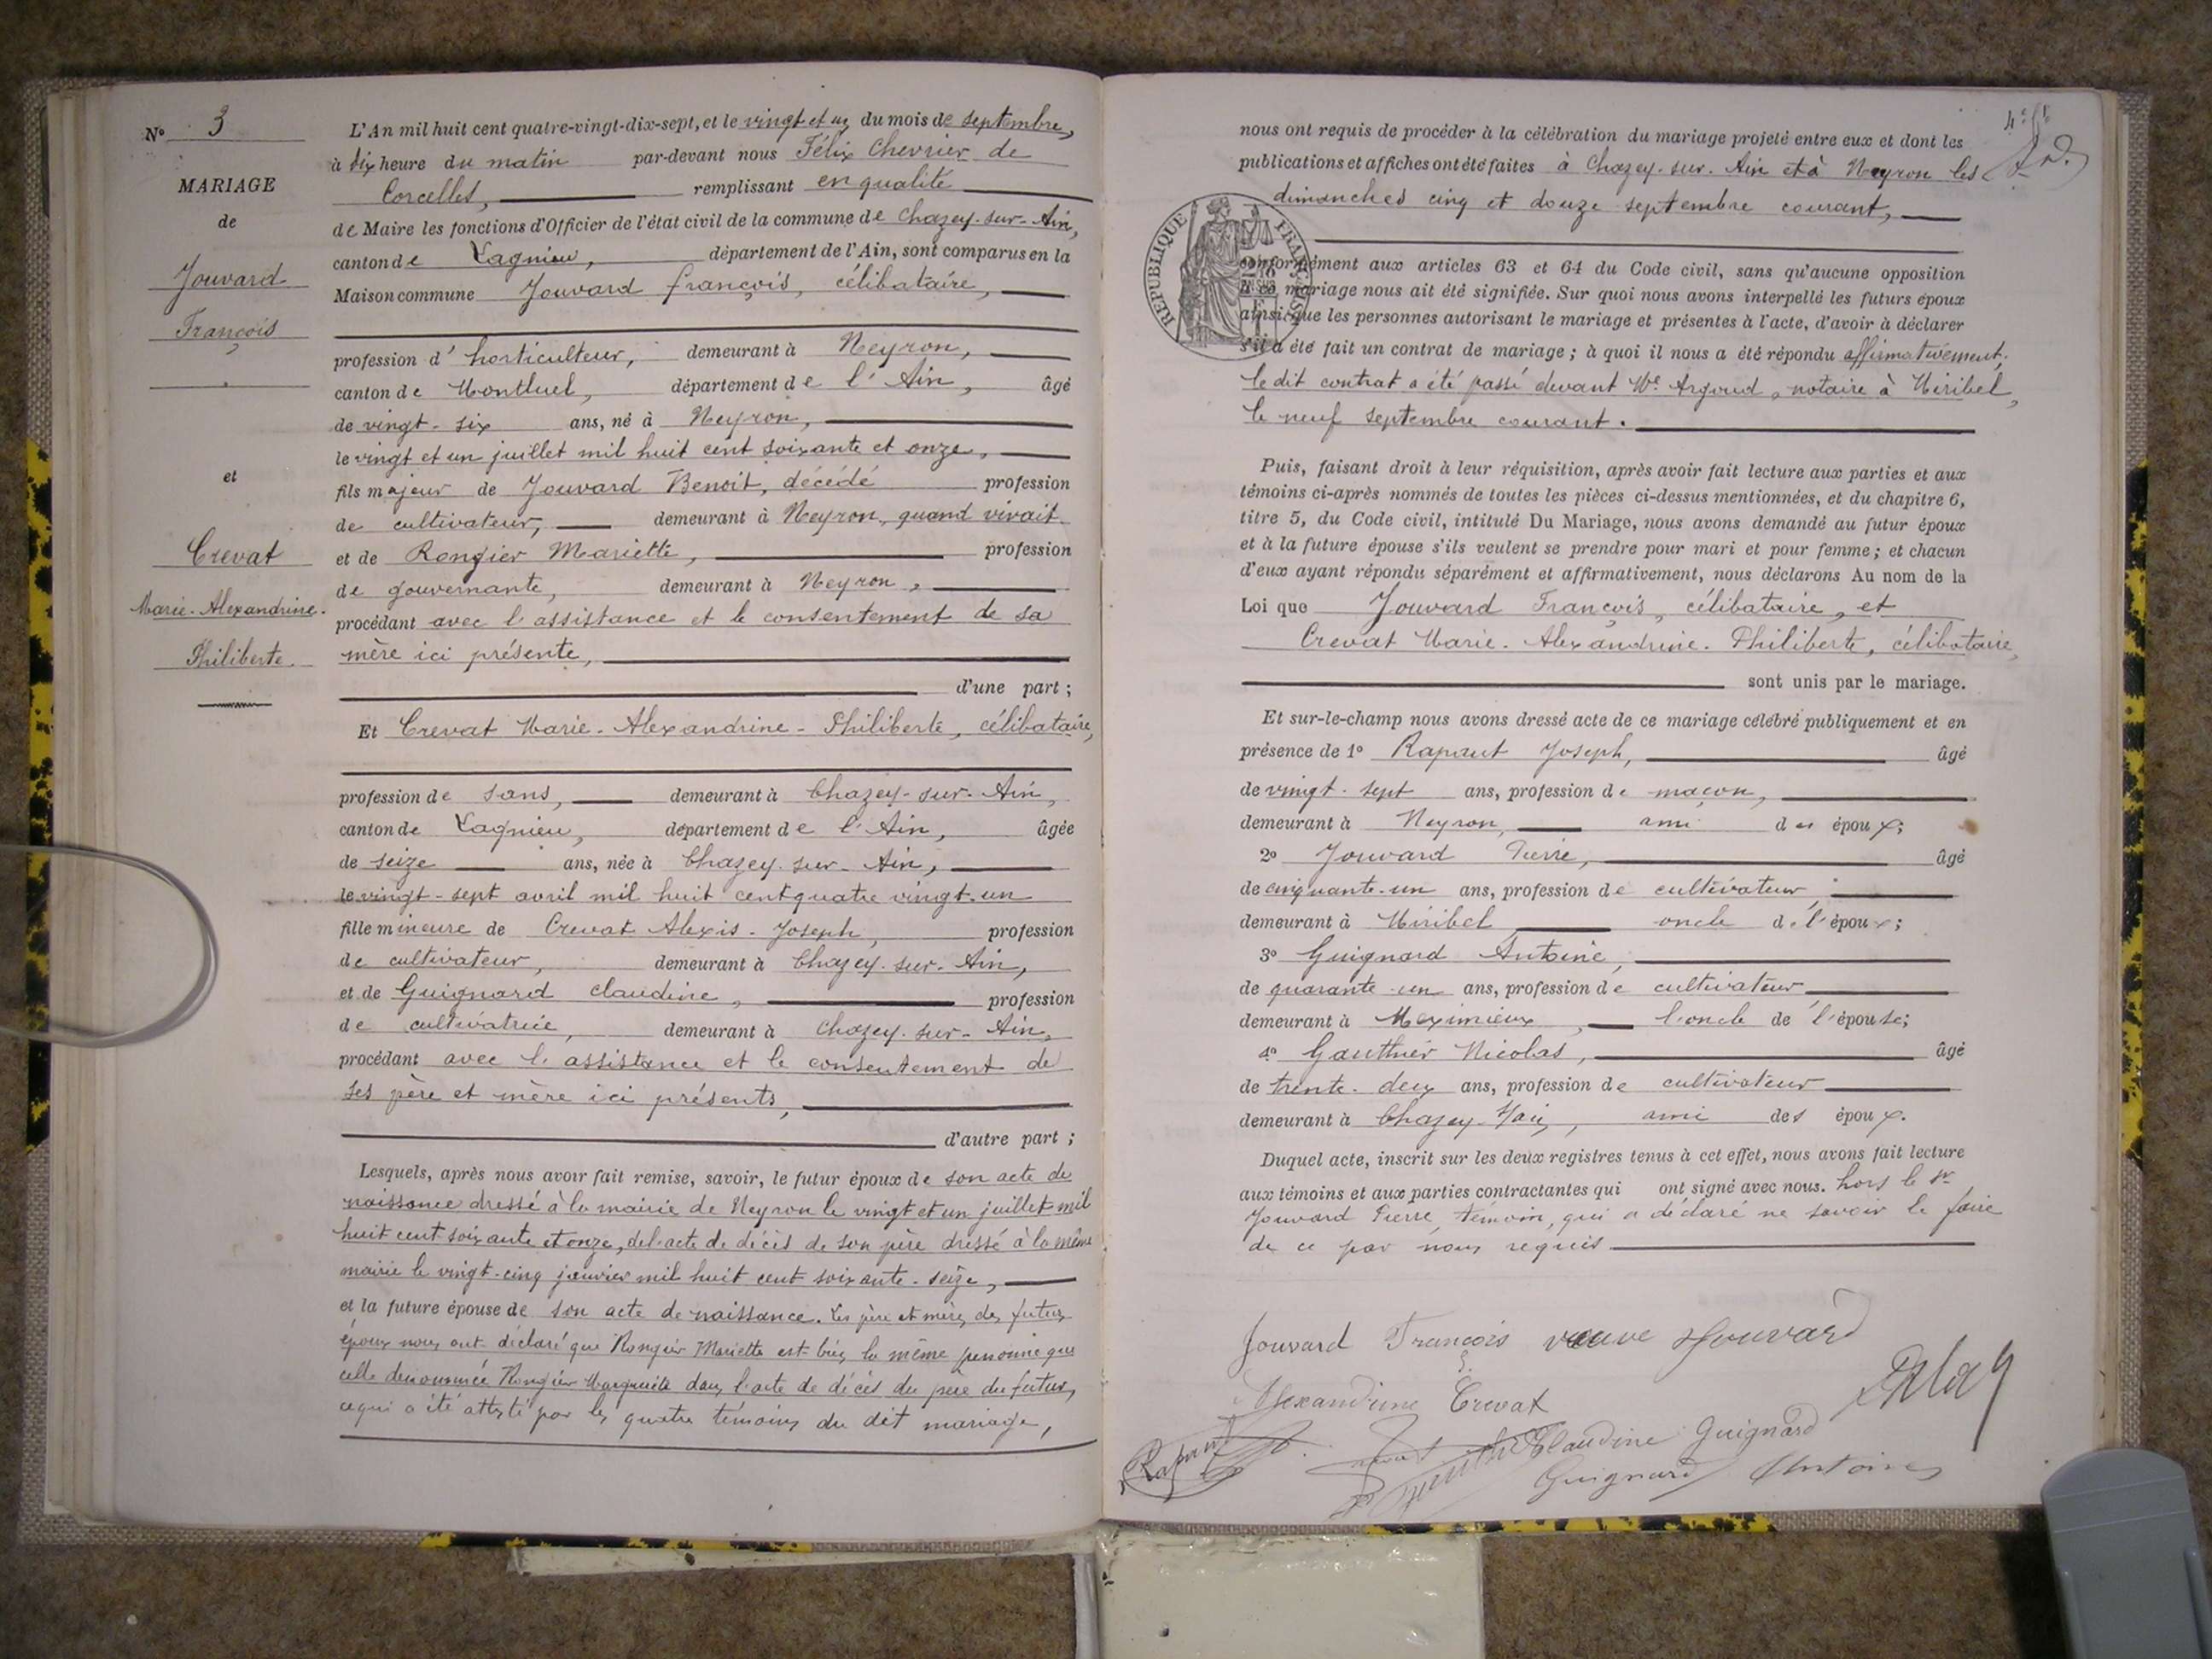 N° 3
MARIAGE
de
Jouvard
François
et
Crevat
Marie-Alexandrine-
Philiberte
L'An mil huit cent quatre-vingt-dix-sept, et le vingt et un du mois de septembre,
à dix heure du matin par-devant nous Félix Chevrier de
Corcelles, remplissant en qualité
de Maire les fonctions d'Officier de l'état civil de la commune de Chazey-sur-Ain,
canton de Lagnieu, département de l'Ain, sont comparus en la
Maison commune Jouvard françois, célibataire,
profession d'horticulteur, demeurant à Neyron,
canton de Montluel, département de l'Ain, âgé
de vingt-six ans, né à Neyron,
le vingt et un juillet mil huit cent soixante et onze,
fils majeur de Jouvard Benoit, décédé profession
de cultivateur, demeurant à Neyron, quand vivait
et de Rongier Mariette, profession
de gouvernante, demeurant à Neyron,
procédant avec l'assistance et le consentement de sa
mère ici présente,
d'une part ;
Et Crevat Marie-Alexandrine-Philiberte, célibataire,
profession de sans, demeurant à Chazey-sur-Ain,
canton de Lagnieu, département de l'Ain, âgée
de seize ans, née à Chazey-sur-Ain,
le vingt-sept avril mil huit cent quatre vingt-un
fille mineure de Crevat Alexis-Joseph, profession
de cultivateur, demeurant à Chazey-sur-Ain,
et de Guignard Claudine, profession
de cultivatrice, demeurant à Chazey-sur-Ain,
procédant avec l'assistance et le consentement de
ses père et mère ici présents,
d'autre part ;
Lesquels, après nous avoir fait remise, savoir, le futur époux de son acte de
naissance dressé à la mairie de Neyron le vingt et un juillet mil
huit cent soixante et onze, de l'acte de décès de son père dressé à la même
mairie le vingt-cinq janvier mil huit cent soixante-seize,
et la future épouse de son acte de naissance. Les père et mère des futurs
époux nous ont déclaré que Rongier Mariette est bien la même personne que
celle dénommée Rongier Marguerite dans l'acte de décès du père du futur,
ce qui a été attesté par les quatre témoins du dit mariage,
4e
nous ont requis de procéder à la célébration du mariage projeté entre eux et dont les
publications et affiches ont été faites à Chazey-sur-Ain et à Neyron les
dimanches cinq et douze septembre courant,
REPUBLIQUE FRANÇAISE
conformément aux articles 63 et 64 du Code civil, sans qu'aucune opposition
à ce mariage nous ait été signifiée. Sur quoi nous avons interpellé les futurs époux
ainsi que les personnes autorisant le mariage et présentes à l'acte, d'avoir à déclarer
s'il a été fait un contrat de mariage ; à quoi il nous a été répondu affirmativement,
le dit contrat a été passé devant Me Argoud, notaire à Miribel,
le neuf septembre courant.
Puis, faisant droit à leur réquisition, après avoir fait lecture aux parties et aux
témoins ci-après nommés de toutes les pièces ci-dessus mentionnées, et du chapitre 6,
titre 5, du Code civil, intitulé Du Mariage, nous avons demandé au futur époux
et à la future épouse s'ils veulent se prendre pour mari et pour femme ; et chacun
d'eux ayant répondu séparément et affirmativement, nous déclarons Au nom de la
Loi que Jouvard François, célibataire, et
Crevat Marie-Alexandrine-Philiberte, célibataire,
sont unis par le mariage.
Et sur-le-champ nous avons dressé acte de ce mariage célébré publiquement et en
présence de 1° Rapaut Joseph, âgé
de vingt-sept ans, profession de maçon,
demeurant à Neyron, ami des époux ;
2° Jouvard Pierre, âgé
de cinquante-un ans, profession de cultivateur
demeurant à Miribel oncle de l'époux ;
3° Guignard Antoine,
de quarante-un ans, profession de cultivateur
demeurant à Meximieux, l'oncle de l'épouse ;
4° Gauthier Nicolas, âgé
de trente-deux ans, profession de cultivateur
demeurant à Chazey- ami des époux.
Duquel acte, inscrit sur les deux registres tenus à cet effet, nous avons fait lecture
aux témoins et aux parties contractantes qui ont signé avec nous. hors le sr
Jouvard Pierre, témoin, qui a déclaré ne savoir le faire
de ce par nous requis
Jouvard François veuve Jouvard
Alexandrine Crevat
Rapaut Claudine Guignard
Guignard Antoine